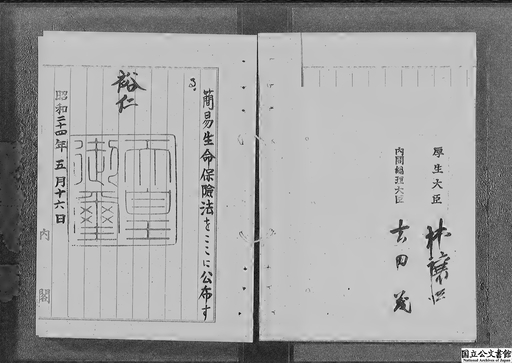 簡易生命保険法をここに公布す
る。
裕仁
天皇
御璽
昭和二十四年五月十六日
内閣
厚生大臣 林譲治
内閣総理大臣 吉田茂
国立公文書館
National Archives of Japan